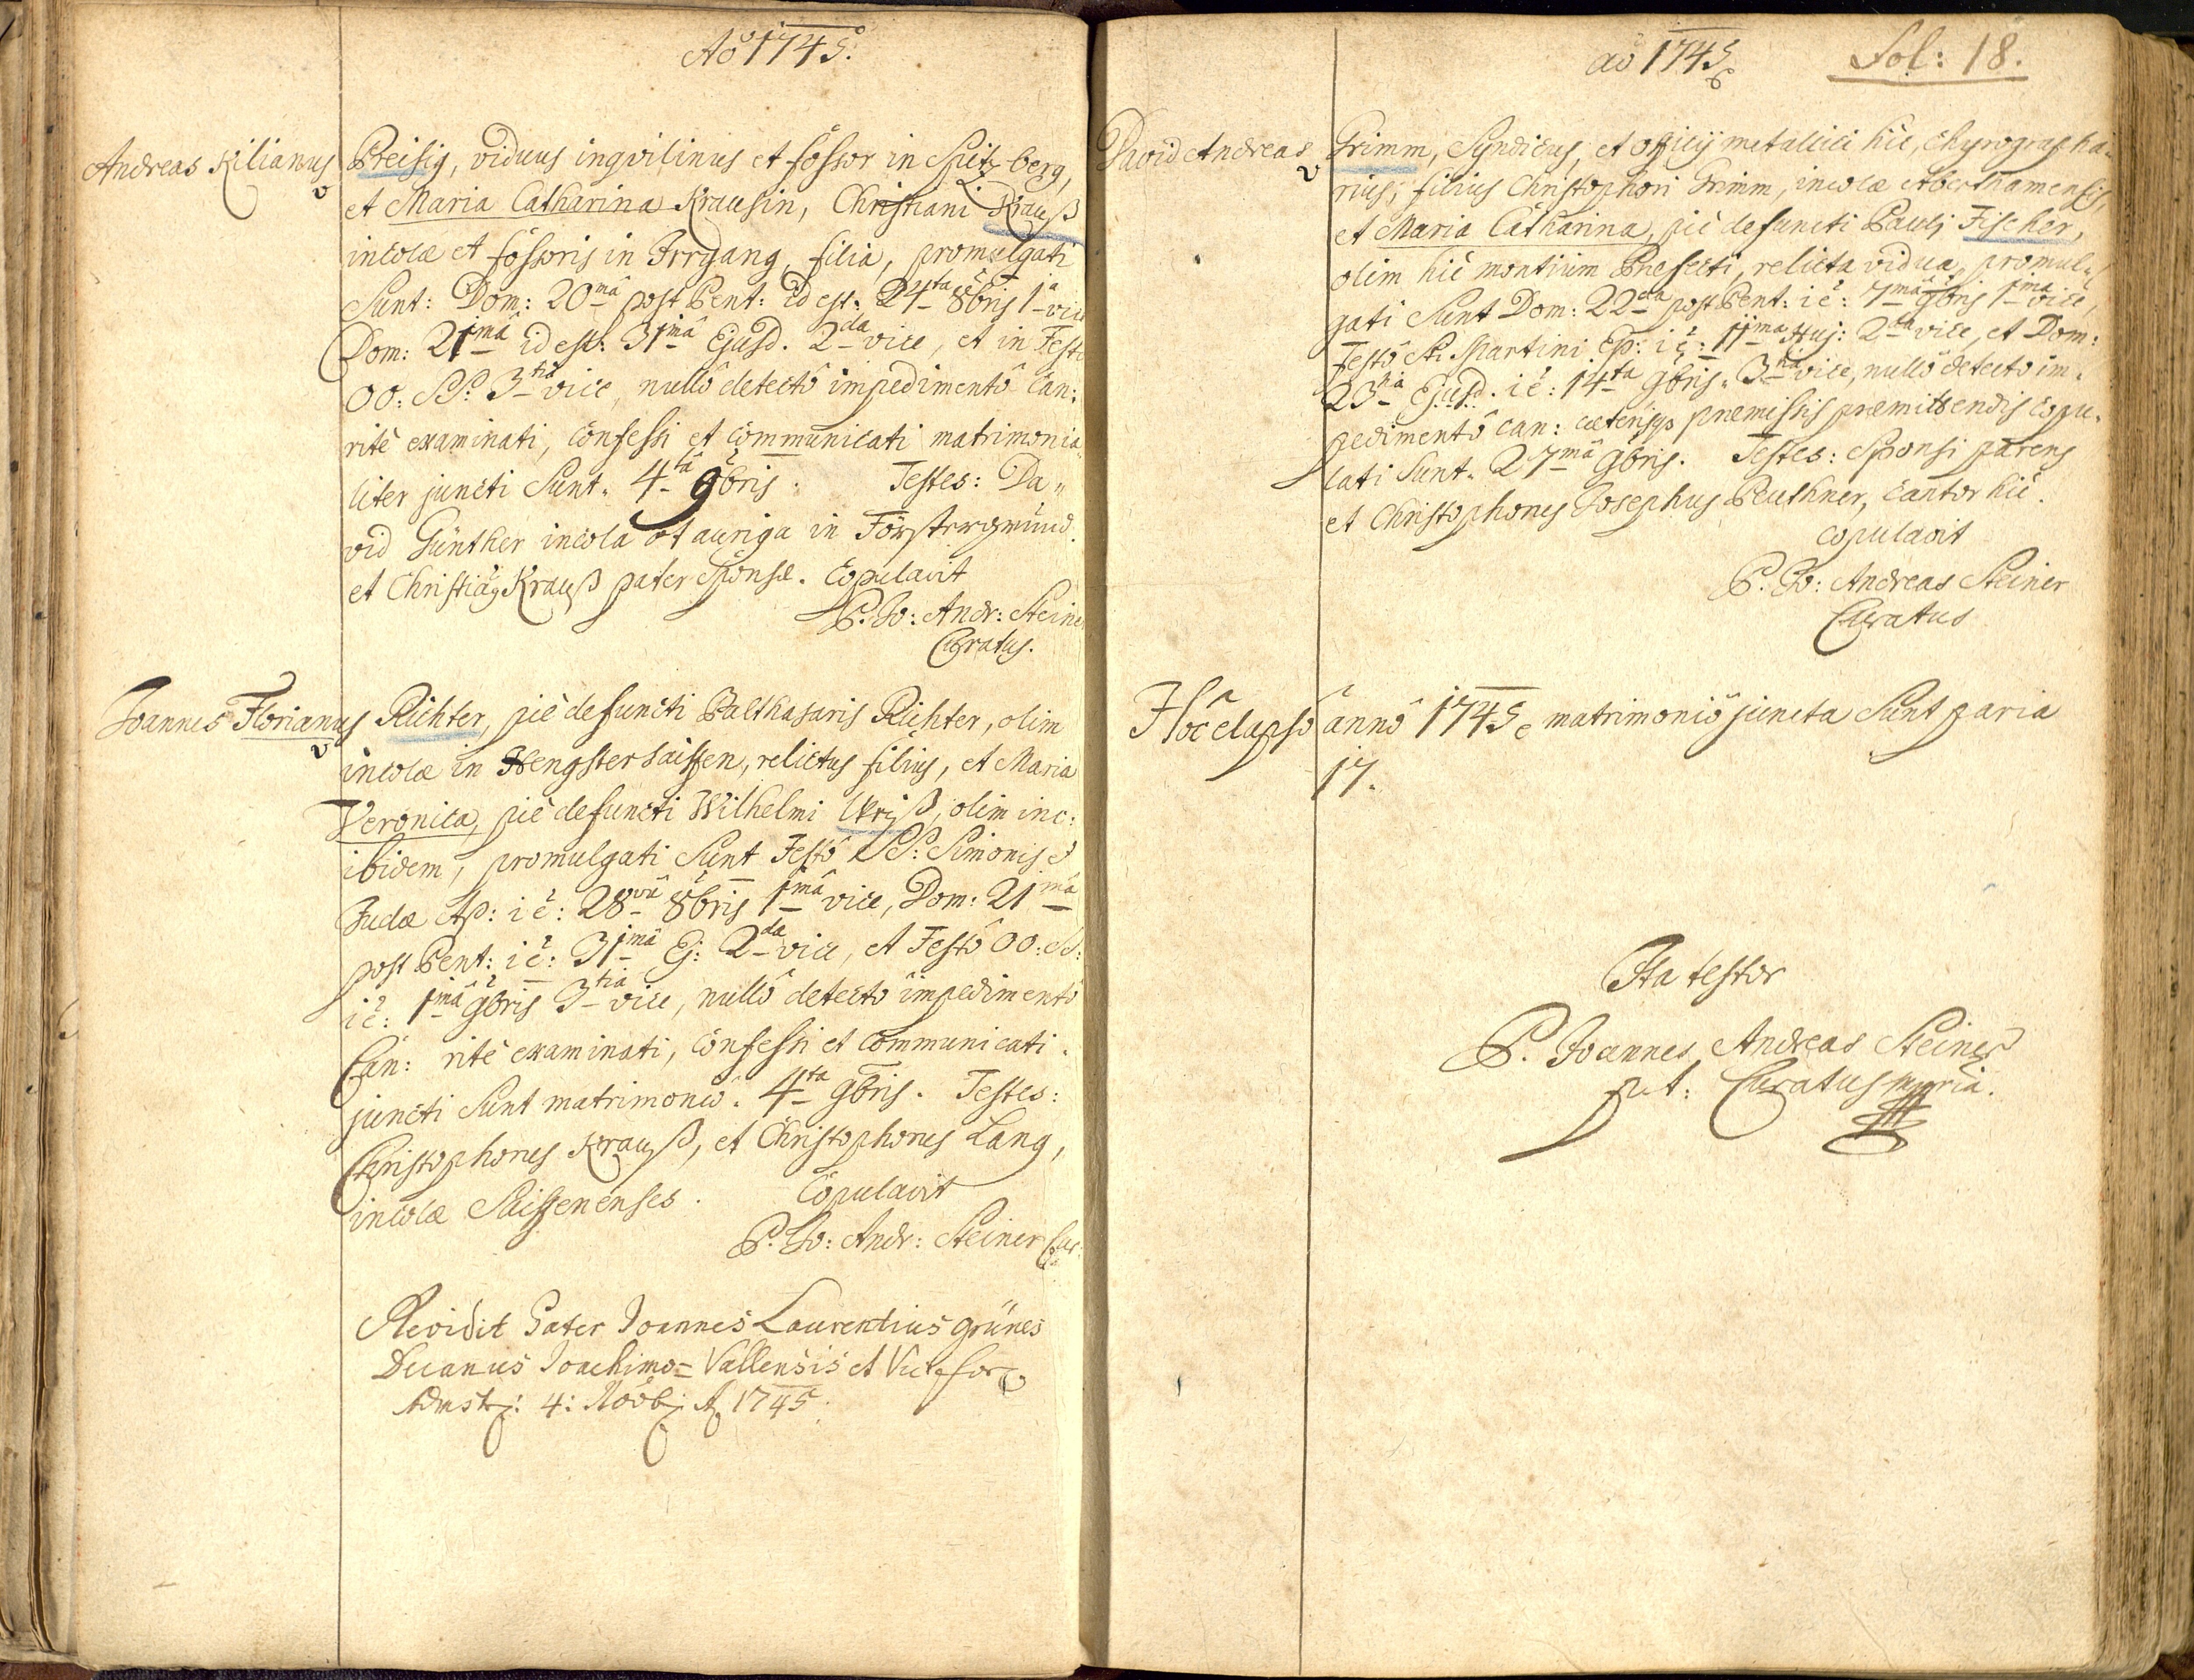 Aô 1745.
Andreas Kilianus Preisig, viduus inqvilinus et fossor in Spitzberg,
et Maria Catharina Krausin, Christiani Krauß
incolæ et fossoris in Irrgang, filia, promulgati
Sunt: Dom: 20mâ post Pent: id est. 24ta 8bris 1a vice
Dom: 21imâ id est. 31imâ Ejusd. 2da vice, et in Festo
OO: SS: 3tiâ vice, nullô detectô impedimentô Can:
ritè examinati, confessi et communicati matrimonia„
liter juncti Sunt. 4tâ 9bris. Testes: Da„
vid Günther incola et auriga in Försterգrund.
et Christiãg Krauß pater Sponsæ. Copulavit
P. Jo: Andr: Steiner
Curatus.
Joannes Florianus Richter, piè defuncti Balthasaris Richter, olim
incolæ in Hengstersaissen, relictus filius, et Maria
Veronica, piè defuncti Wilhelmi Ulriß, olim inc:
ibidem, promulgati Sunt Festô SS: Simonis &
Judæ Ap: i ē: 28vâ 8bris 1mâ vice, Dom: 21imâ
post Pent: i ē: 31imâ Ej: 2da vice, et Festô OO: SS:
i ē: 1imâ 9bris 3tiâ vice, nullô detectô impedimentô
Can: ritè examinati, confessi et communicati.
juncti Sunt matrimoniô. 4ta 9bris. Testes:
Christophorus Krauß, et Christophorus Lang,
incolæ Saissenenses. Copulavit
P. Jo: Andr: Steiner Cur:
Revidit Pater Joannes Laurentius Grünes
Decanus Joachimo=Vallensis et Vic: for:
Admstr: 4: Novb: A. 1745.
aô 1745 Fol: 18.
David Andreas Grimm, Syndicus, et officij metallici hic, Chyrographa„
rius, filius Christophori Grimm, incolæ Aberthamensis,
et Maria Catharina, piè defuncti Pauli Fischer,
olim hic montium Præfecti, relicta vidua, promul„
gati Sunt Dom: 22da post Pent: i ē: 7mâ 9bris 1mâ vice,
Festô St: Martini Ep: i ē: 11ima Huj: 2da vice, et Dom:
23tiâ Ejusd. i ē: 14ta 9bris. 3tiâ vice, nullô detectô im„
pedimentô can: cæterisqs præmissis præmittendis copu„
lati Sunt. 27mâ 9bris. Testes: Sponsi parens
et Christophorus Josephus Peuthner, Cantor hic.
Copulavit
P. Jo: Andreas Steiner
Curatus
Hôc elapsô annô 1745 matrimoniô juncta Sunt paria
17.
Ita testor
P. Joannes Andreas Steiner
p.t. Curatus mpria.